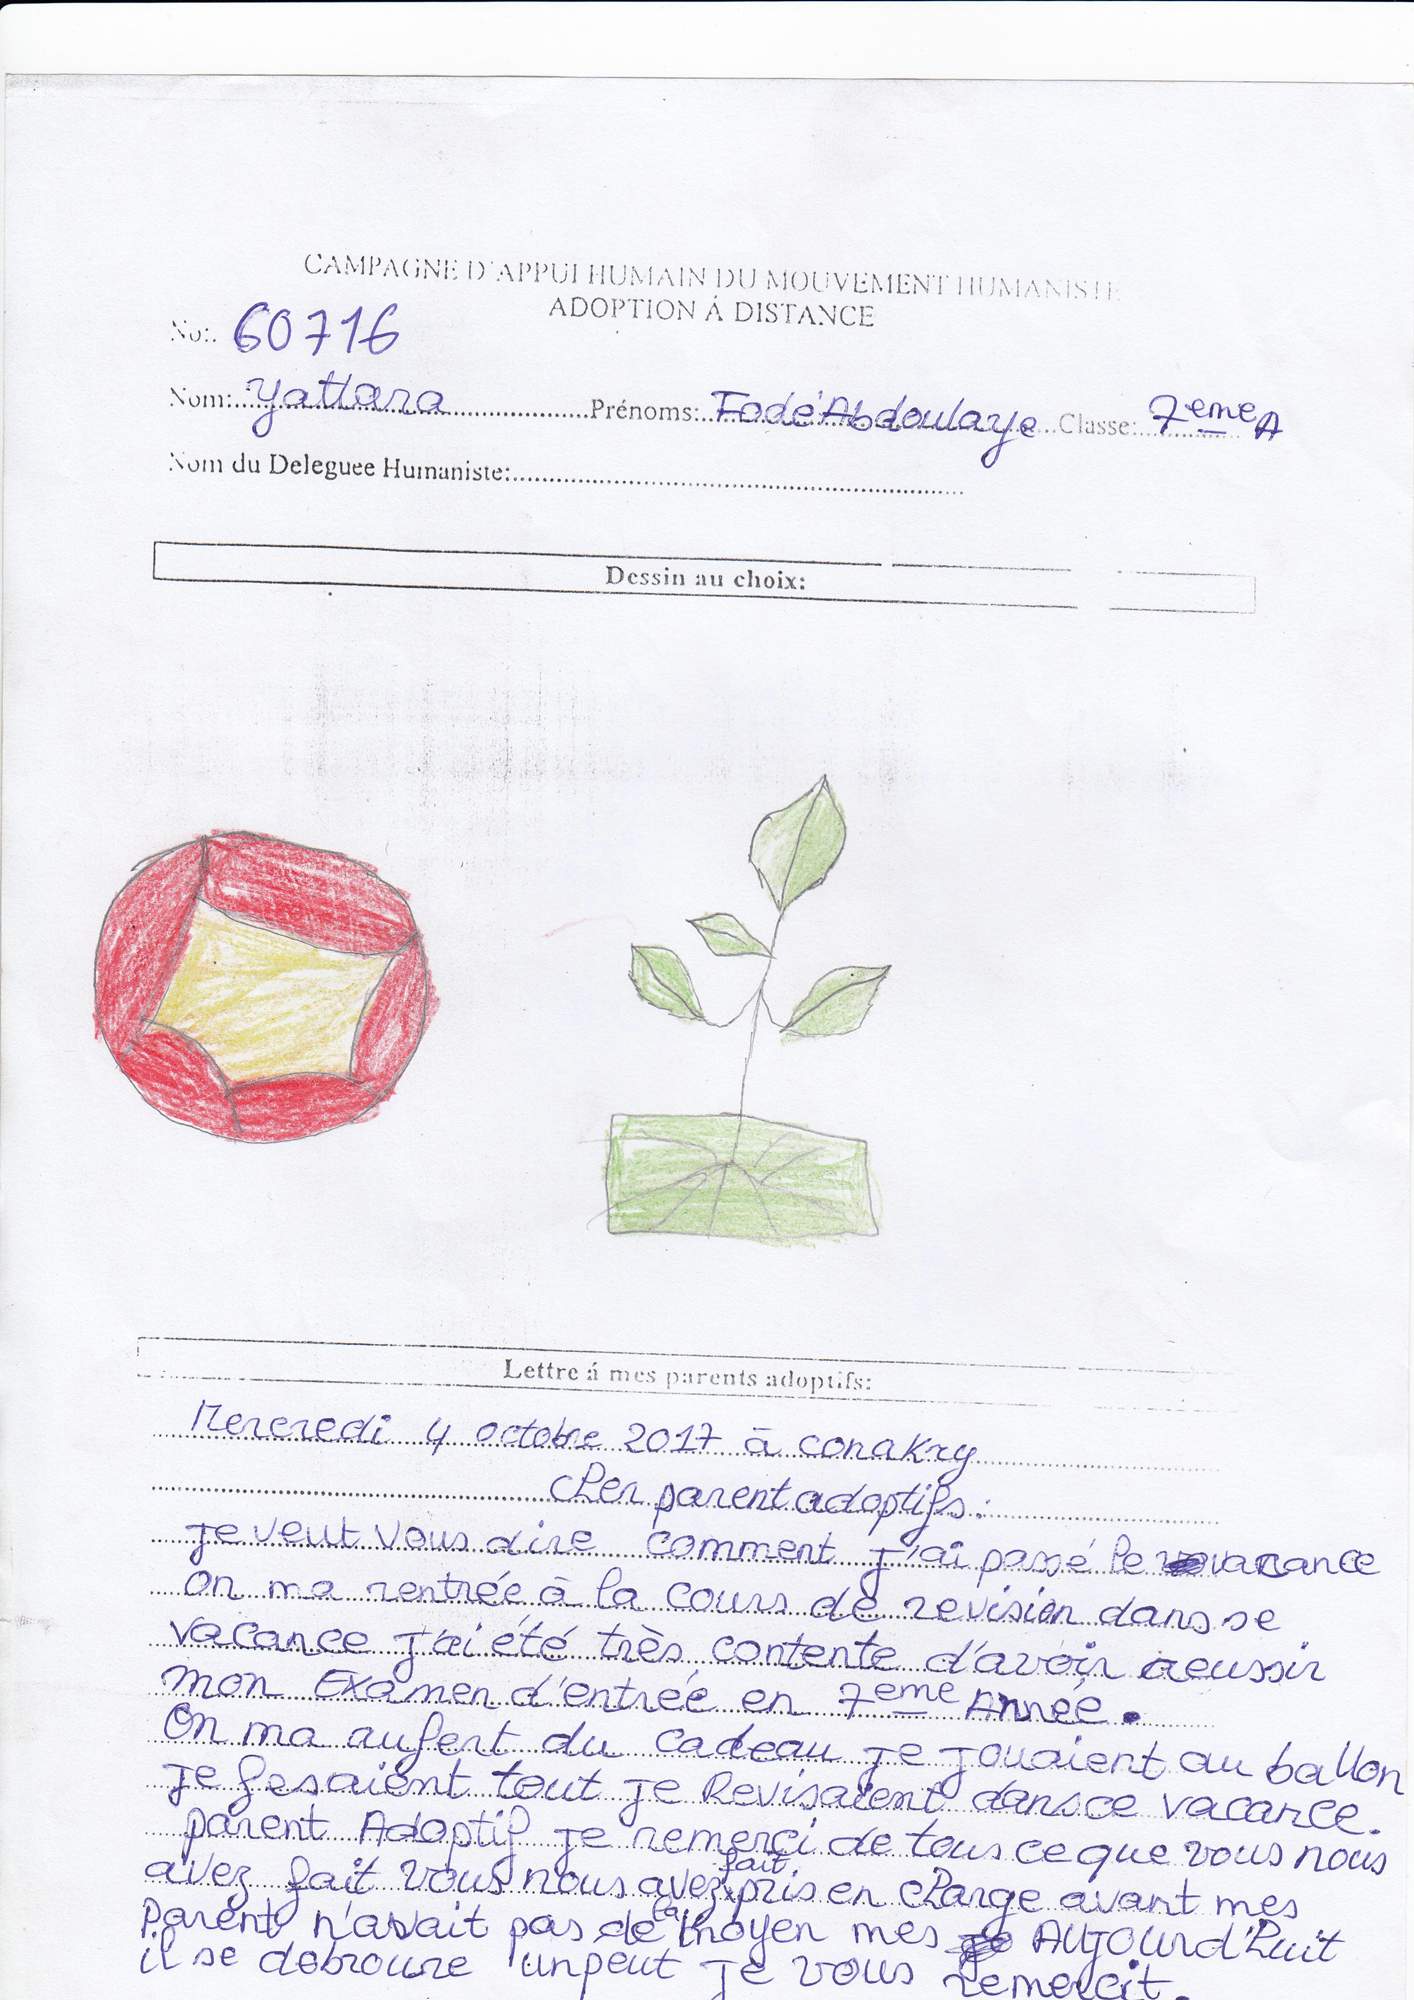 CAMPAGNE D'APPUI HUMAIN DU MOUVEMENT HUMANISTE
ADOPTION Á DISTANCE
No:. 60716
Nom: Yattara Prénoms: Fodé Abdoulaye Classe: 7eme A
Nom du Deleguee Humaniste:
Dessin au choix:
Lettre á mes parents adoptifs:
Mercredi 4 octobre 2017 à conakry
cher parent adoptifs:
je veut vous dire comment j'ai passé le vacance
on ma rentrée à la cours de revision dans se
vacance j'ai été très contente d'avoir reussir
mon Examen d'entrée en 7eme Année.
On ma aufert du cadeau je jouaient au ballon
je fesaient tout je Revisaient dans ce vacance.
parent Adoptif je remerci de tous ce que vous nous
avez fait vous nous avez fait pris en charge avant mes
Parent n'avait pas de la moyen mes AUjourd'huit
il se debroure unpeut je vous remercit.